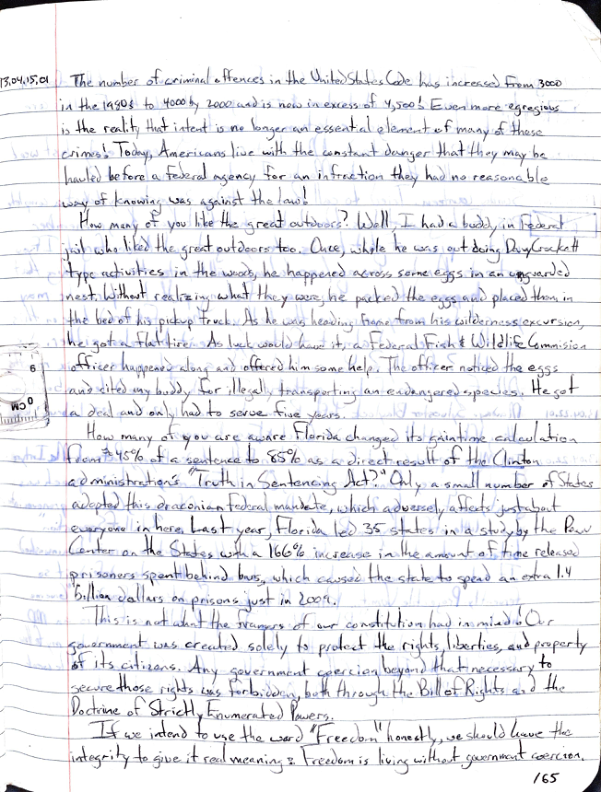 13.04.15.01 The number of criminal offences in the United States Code has increased from 3000
in the 1980s to 4000 by 2000 and is now in excess of 4,500! Even more egregious
is the reality that intent is no longer an essential element of many of these
crimes! Today, Americans live with the constant danger that they may be
hauled before a federal agency for an infraction they had no reasonable
way of knowing was against the law!
How many of you like the great outdoors? Well, I had a buddy in Federal
jail who liked the great outdoors too. Once, while he was out doing Davy Crockett
type activities in the woods, he happened across some eggs in an unguarded
nest. Without realizing what they were, he packed the eggs and placed them in
the bed of his pickup truck. As he was heading home from his wilderness excursion,
he got a flat tire. As luck would have it, a Federal Fish & Wildlife Commision
officer happened along and offered him some help. The officer noticed the eggs
and cited my buddy for illegally transporting an endangered species. He got
a deal and only had to serve five years.
How many of you are aware Florida changed its gaintime calculation
from 45% of a sentence to 85% as a direct result of the Clinton
administration's "Truth in Sentencing Act?" Only a small number of States
adopted this draconian federal mandate, which adversely affects just about
everyone in here. Last year, Florida led 35 states in a study by the Pew
Center on the States with a 166% increase in the amount of time released
prisoners spent behind bars, which caused the state to spend an extra 1.4
billion dollars on prisons just in 2009.
This is not what the framers of our constitution had in mind! Our
government was created solely to protect the rights, liberties, and property
of its citizens. Any government coercion beyond that necessary to
secure those rights was forbidden, both through the Bill of Rights and the
Doctrine of Strictly Enumerated Powers.
If we intend to use the word "Freedom" honestly, we should have the
integrity to give it real meaning: Freedom is living without government coercion.
165
9
0 CM